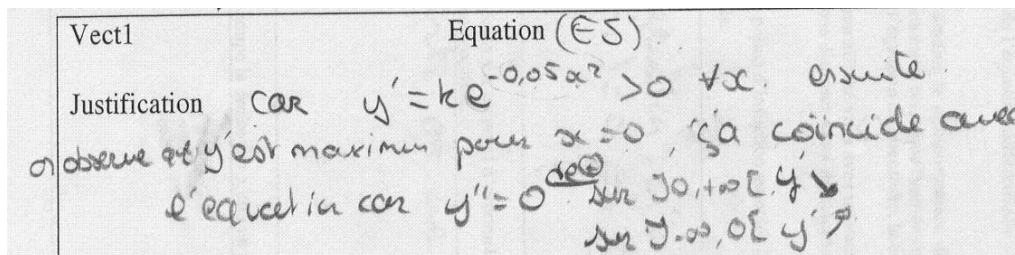 Vect1 Equation (E5).
Justification car y' = ke^-0,05x² > 0 ∀x. ensuite
on observe que y' est maximum pour x = 0, ça coïncide avec
l'équation car y'' = 0 sur ]0, +∞[ y' ↘
sur ]-∞, 0[ y' ↗